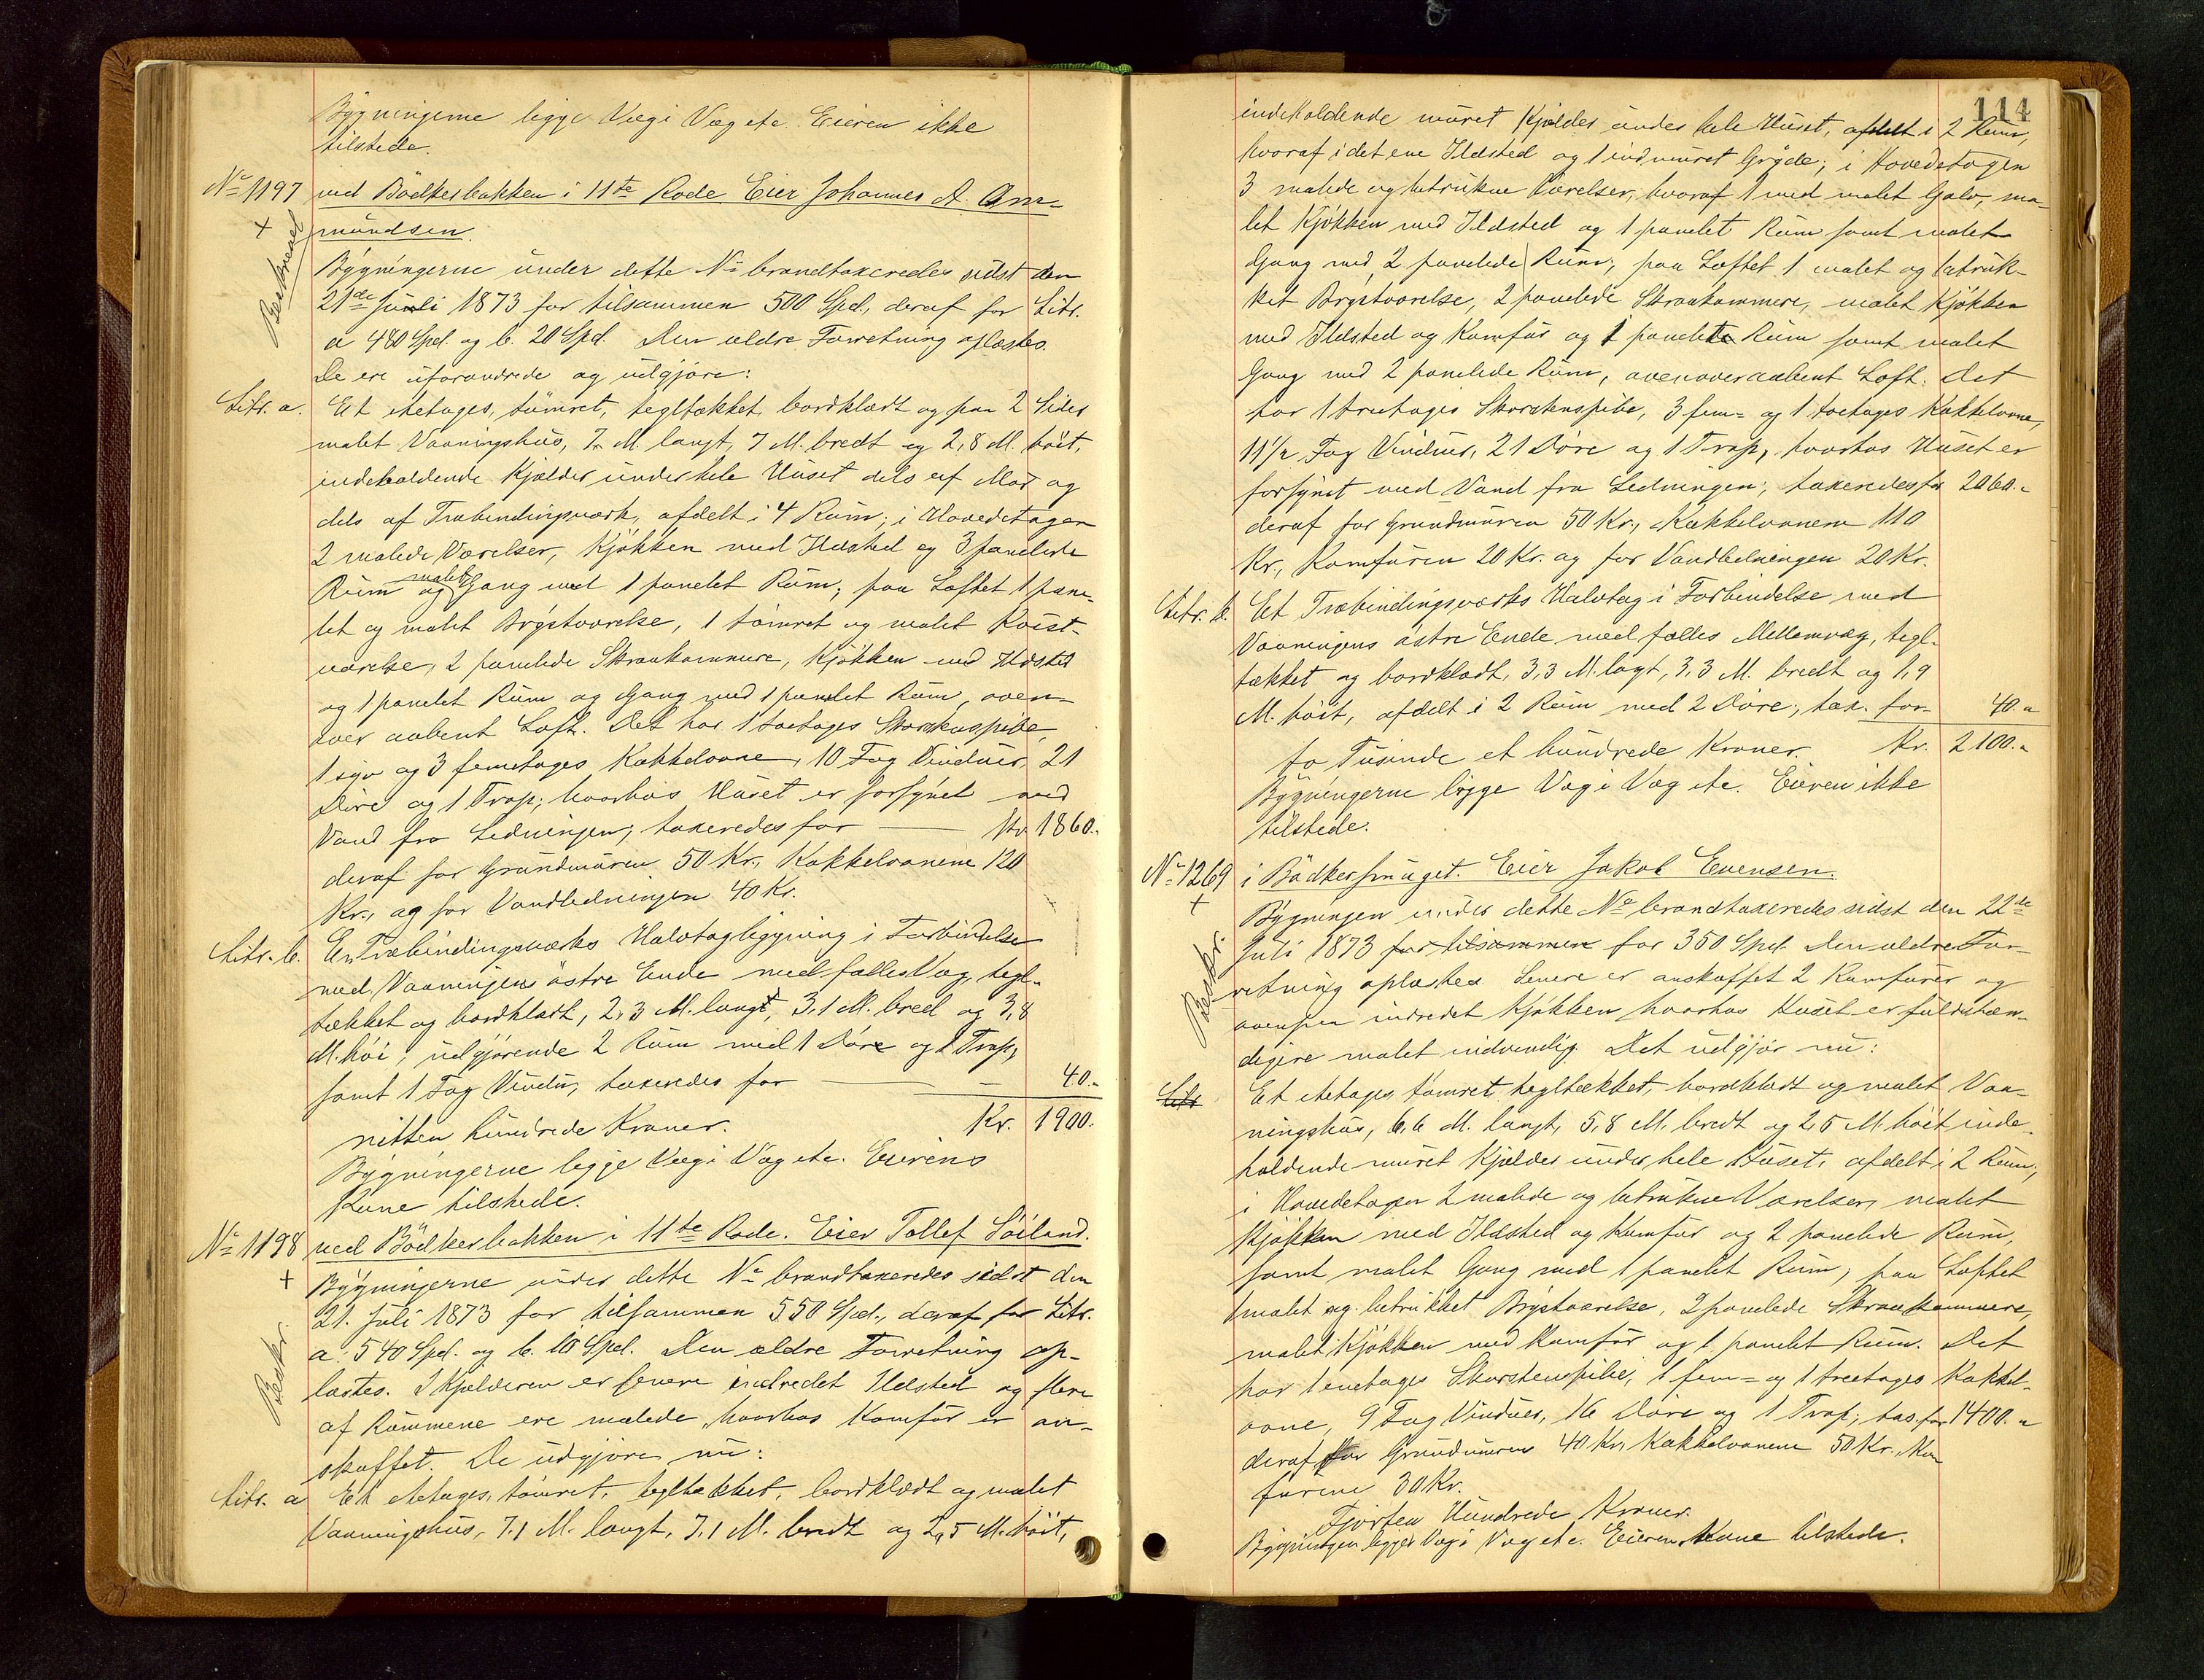 Bygningerne ligge Væg i Væg etc. Eieren ikke
tilstede.
No 1197 ved Bödkerbakken i 11te Rode. Eier Johannes A. Am-
+ mundsen.
Beskrevet
Bygningerne under dette No brandtaxeredes sidst den
21de Juli 1873 for tilsammen 500 Spd., deraf for Litr.
a 480 Spd. og b. 20 Spd. Den ældre Forretning oplæstes.
De ere uforandrede og udgjöre:
Litr. a. Et etetages, tömret, tegltækket, bordklædt og paa 2 Sider
malet Vaaningshus, 7 M. langt, 7 M. bredt og 2,8 M. höit,
indeholdende Kjælder under hele Huset dels af Mur og
dels af Træbindingsværk, afdelt i 4 Rum; i Hovedetagen
2 malede Værelser, Kjökken med Ildsted og 3 panelede
Rum og malet Gang med 1 panelet Rum; paa Loftet 1 pane-
let og malet Brystværelse, 1 tömret og malet Kvist-
værelse, 2 panelede Skraakammere, Kjökken med Ildsted
og 1 panelet Rum og Gang med 1 panelet Rum, oven-
over aabent Loft. Det har 1 toetages Skorstenspibe,
1 syv og 3 femetages Kakkelovne, 10 Fag Vinduer, 21
Döre og 1 Trap; hvorhos Huset er forsynet med
Vand fra Ledningen; taxeredes for — Kr. 1860.-
deraf for Grundmuren 50 Kr., Kakkelovnene 120
Kr., og for Vandledningen 40 Kr.
Litr. b. En Træbindingsværks Halvtagbygning i Forbindelse
med Vaaningens östre Ende med fælles Væg, tegl-
tækket og bordklædt, 2,3 M. langt, 3,1 M. bred og 3,8
M. höi, udgjörende 2 Rum med 1 Döre og 1 Trap,
samt 1 Fag Vindu, taxeredes for — 40.-
nitten hundrede Kroner. Kr. 1900.
Bygningerne ligge Væg i Væg etc. Eierens
Kone tilstede.
No 1198 ved Bödkerbakken i 11te Rode. Eier Tollef Söiland.
+ Bygningerne under dette No brandtaxeredes sidst den
21. Juli 1873 for tilsammen 550 Spd., deraf for Litr.
Beskr.
a. 540 Spd. og b. 10 Spd. Den ældre Forretning op-
læstes. I Kjælderen er senere indredet Ildsted og flere
af Rummene ere malede, hvorhos Komfur er an-
skaffet. De udgjöre nu:
Litr. a Et etetages, tömret, tegltækket, bordklædt og malet
Vaaningshus, 7,1 M. langt, 7,1 M. bredt og 2,5 M. höit,
114
indeholdende muret Kjælder under hele Huset, afdelt i 2 Rum,
hvoraf i det ene Ildsted og 1 indmuret Gryde; i Hovedetagen
3 malede og betrukne Værelser, hvoraf 1 med malet Gulv, ma-
let Kjökken med Ildsted og 1 panelet Rum samt malet
Gang med 2 panelede Rum; paa Loftet 1 malet og betruk-
ket Brystværelse, 2 panelede Skraakammere, malet Kjökken
med Ildsted og Komfur og 1 panelet Rum samt malet
Gang med 2 panelede Rum, ovenover aabent Loft. Det
har 1 treetages Skorstenspibe, 3 fem- og 1 toetages Kakkelovne,
11 1/2 Fag Vinduer, 21 Döre og 1 Trap, hvorhos Huset er
forsynet med Vand fra Ledningen; taxeredes for 2060.-
deraf for Grundmuren 50 Kr., Kakkelovnene 110
Kr., Komfuren 20 Kr. og for Vandledningen 20 Kr.
Litr. b. Et Træbindingsværks Halvtag i Forbindelse med
Vaaningens östre Ende med fælles Mellemvæg, tegl-
tækket og bordklædt, 3,3 M. lagt, 3,3 M. bredt og 1,9
M. höit, afdelt i 2 Rum med 2 Döre; tax. for 40.-
to Tusinde et hundrede Kroner. Kr. 2100.-
Bygningerne ligge Væg i Væg etc. Eieren ikke
tilstede.
No 1269 i Bödkersmuget. Eier Jakob Evensen.
+ Bygningen under dette No brandtaxeredes sidst den 22de
Juli 1873 for tilsammen for 350 Spd. Den ældre For-
Beskr.
retning oplæstes. Senere er anskaffet 2 Komfurer og
ovenpaa indredet Kjökken hvorhos Huset er fuldstæn-
digere malet indvendig. Det udgjör nu:
Litr Et etetages tömret tegltækket, bordklædt og malet Vaa-
ningshus, 6,6 M. langt, 5,8 M. bredt og 2,5 M. höit inde-
holdende muret Kjælder under hele Huset, afdelt i 2 Rum;
i Hovedetagen 2 malede og betrukne Værelser, malet
Kjökken med Ildsted og Komfur og 2 panelede Rum,
samt malet Gang med 1 panelet Rum; paa Loftet
1 malet og betrukket Brystværelse, 2 panelede Skraakammere,
malet Kjökken med Komfur og 1 panelet Rum. Det
har 1 enetages Skorstenspibe, 1 fem- og 1 treetages Kakkel-
ovne, 9 Fag Vinduer, 16 Döre og 1 Trap; tax. for 1400.-
deraf for Grundmuren 40 Kr., Kakkelovnene 50 Kr., Kom
furene 30 Kr.
Fjorten Hundrede Kroner.
Bygningen ligger Væg i Væg etc. Eierens Kone tilstede.